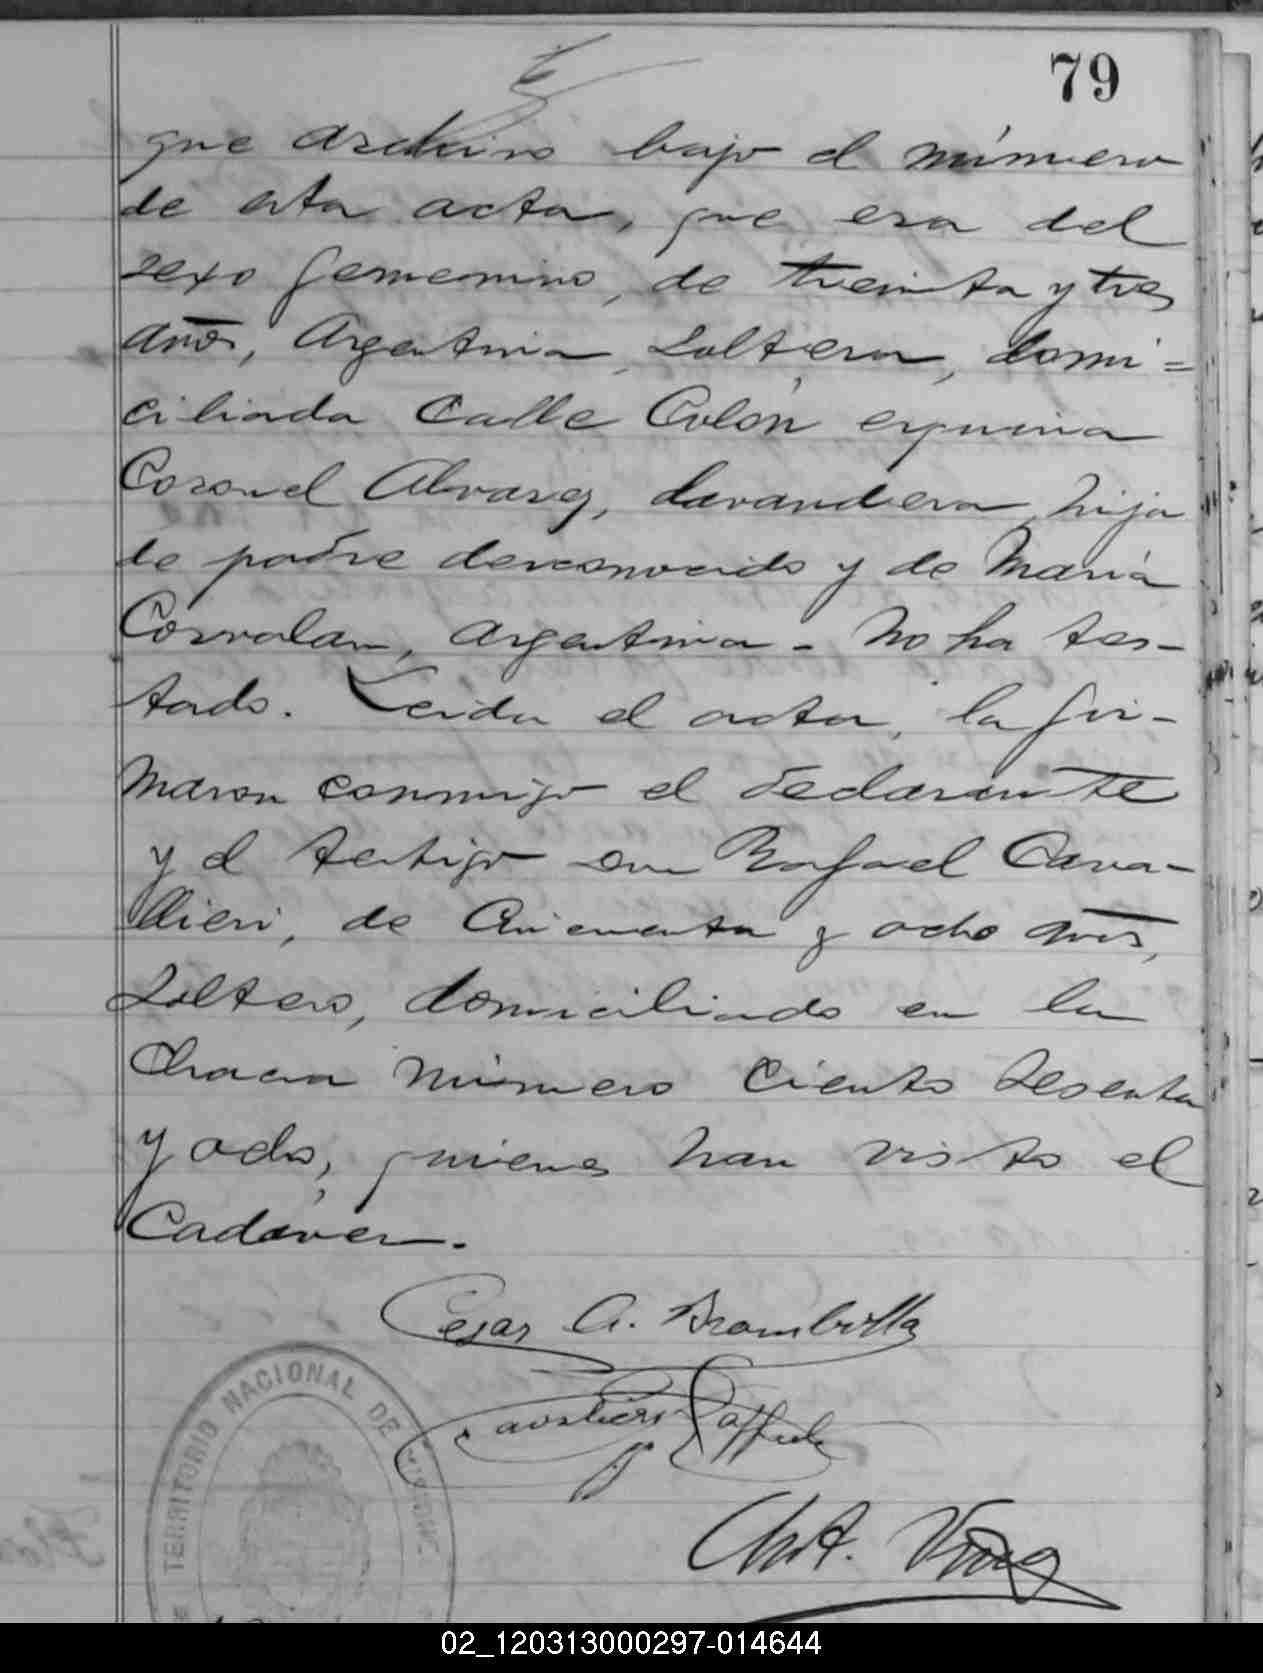 79
que archivo bajo el número
de esta acta, que era del
sexo femenino, de treinta y tres
años, Argentina, soltera, domi=
ciliada Calle Colón esquina
Coronel Alvarez, lavandera, hija
de padre desconocido y de María
Corvalan, argentina - No ha tes-
tado. Leida el acta, la fir-
maron conmigo el declarante
y el testigo Don Rafael Cava-
llieri, de Cincuenta y ocho años,
Soltero, domiciliado en la
Chacra número Ciento sesenta
y ocho, quienes han visto el
Cadáver.
Cesar A. Brambilla
Cavalieri Raffaele
TERRITORIO NACIONAL DE
02_120313000297-014644